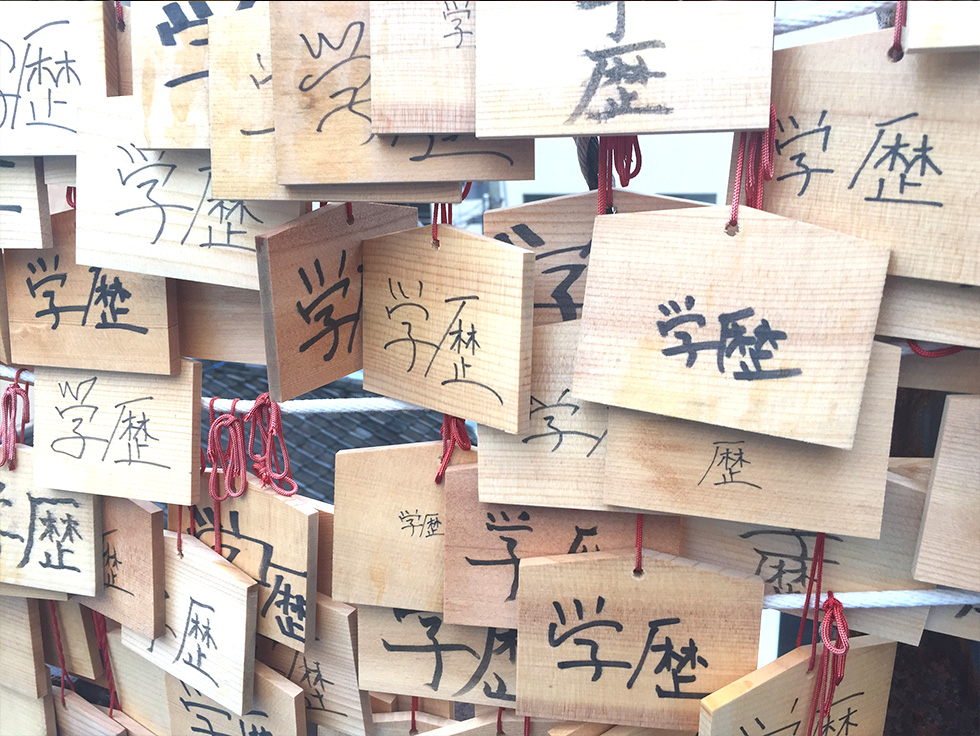 歴
学
学
歴
学歴
学歴
学歴
学
学歴
学
学歴
学歴
学
歴
学歴
歴
歴
学歴
学
歴
歴
学歴
学歴
歴
学